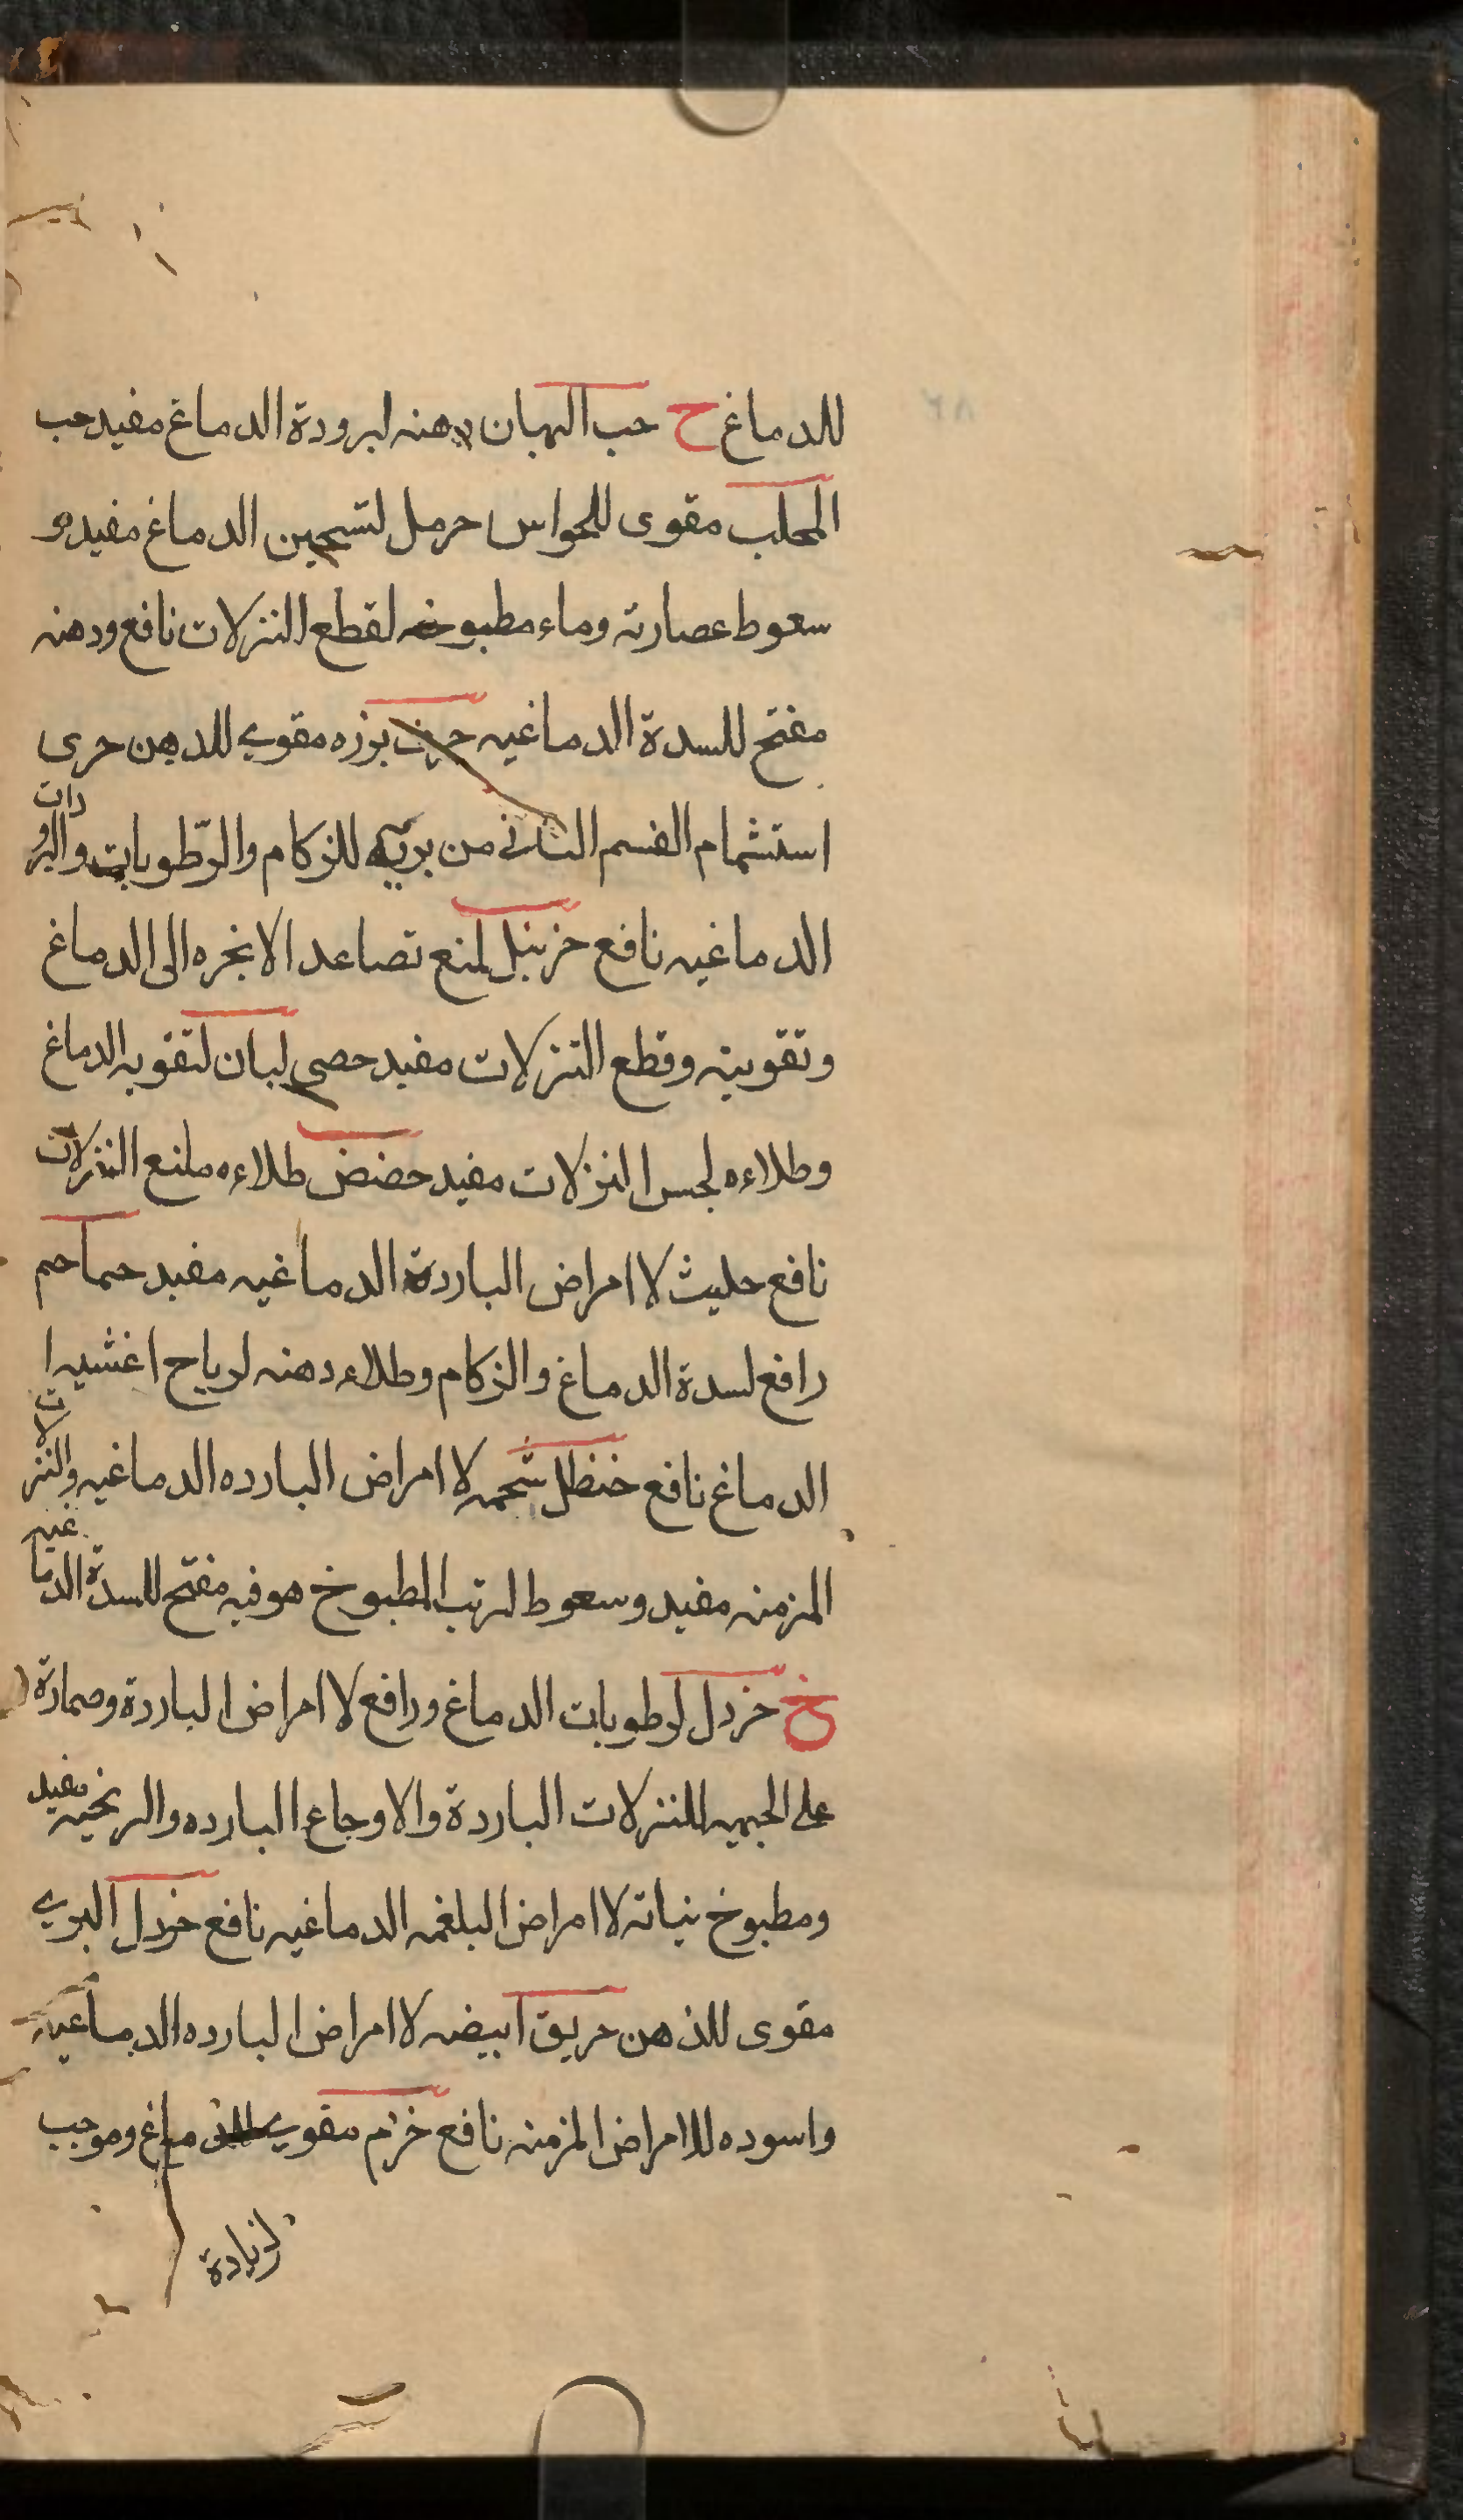 للدماغ ح حب البان دهنه لبرودة الدماغ مفيد حب
المحلب مقوى للحواس حرمل لتسخين الدماغ مفيد و
سعوط عصارته وماء مطبوخه لقطع النزلات نافع ودهنه
مفتح للسدة الدماغيه حرف بزره مقوي للدهن حرى
استشمام القسم الثانى من بريه للزكام والرّطوبات والبرودات
الدماغيه نافع حزنبل لمنع تصاعد الابخره الى الدماغ
وتقويته وقطع النزلات مفيد حصى لبان لتقويه الدماغ
وطلاءه لحبس النزلات مفيد حضض طلاءه ملنع النزلات
نافع حليث لاامراض الباردة الدماغيه مفيد حماحم
رافع لسدة الدماغ والزكام وطلاء دهنه لرياح اغشيه ا
الدماغ نافع خنظل شحمه لاامراض البارده الدماغيه والنزلات
المزمنه مفيد وسعوط لزيت المطبوخ هو فيه مفتح للسدة الدماغيه
خ خردل لرطوبات الدماغ ورافع لاامراض الباردة وضمادة
على الجبهيه للنزلات الباردة والاوجاع البارده والريحيه مفيد
ومطبوخ نباته لاامراض البلغمه الدماغيه نافع خردل البري
مقوى للذهن خربق ابيضه لاامراض البارده الدماغيه
واسوده للامراض المزمنه نافع خزم مقوي للدماغ وموجب
لزيادة
٦٨